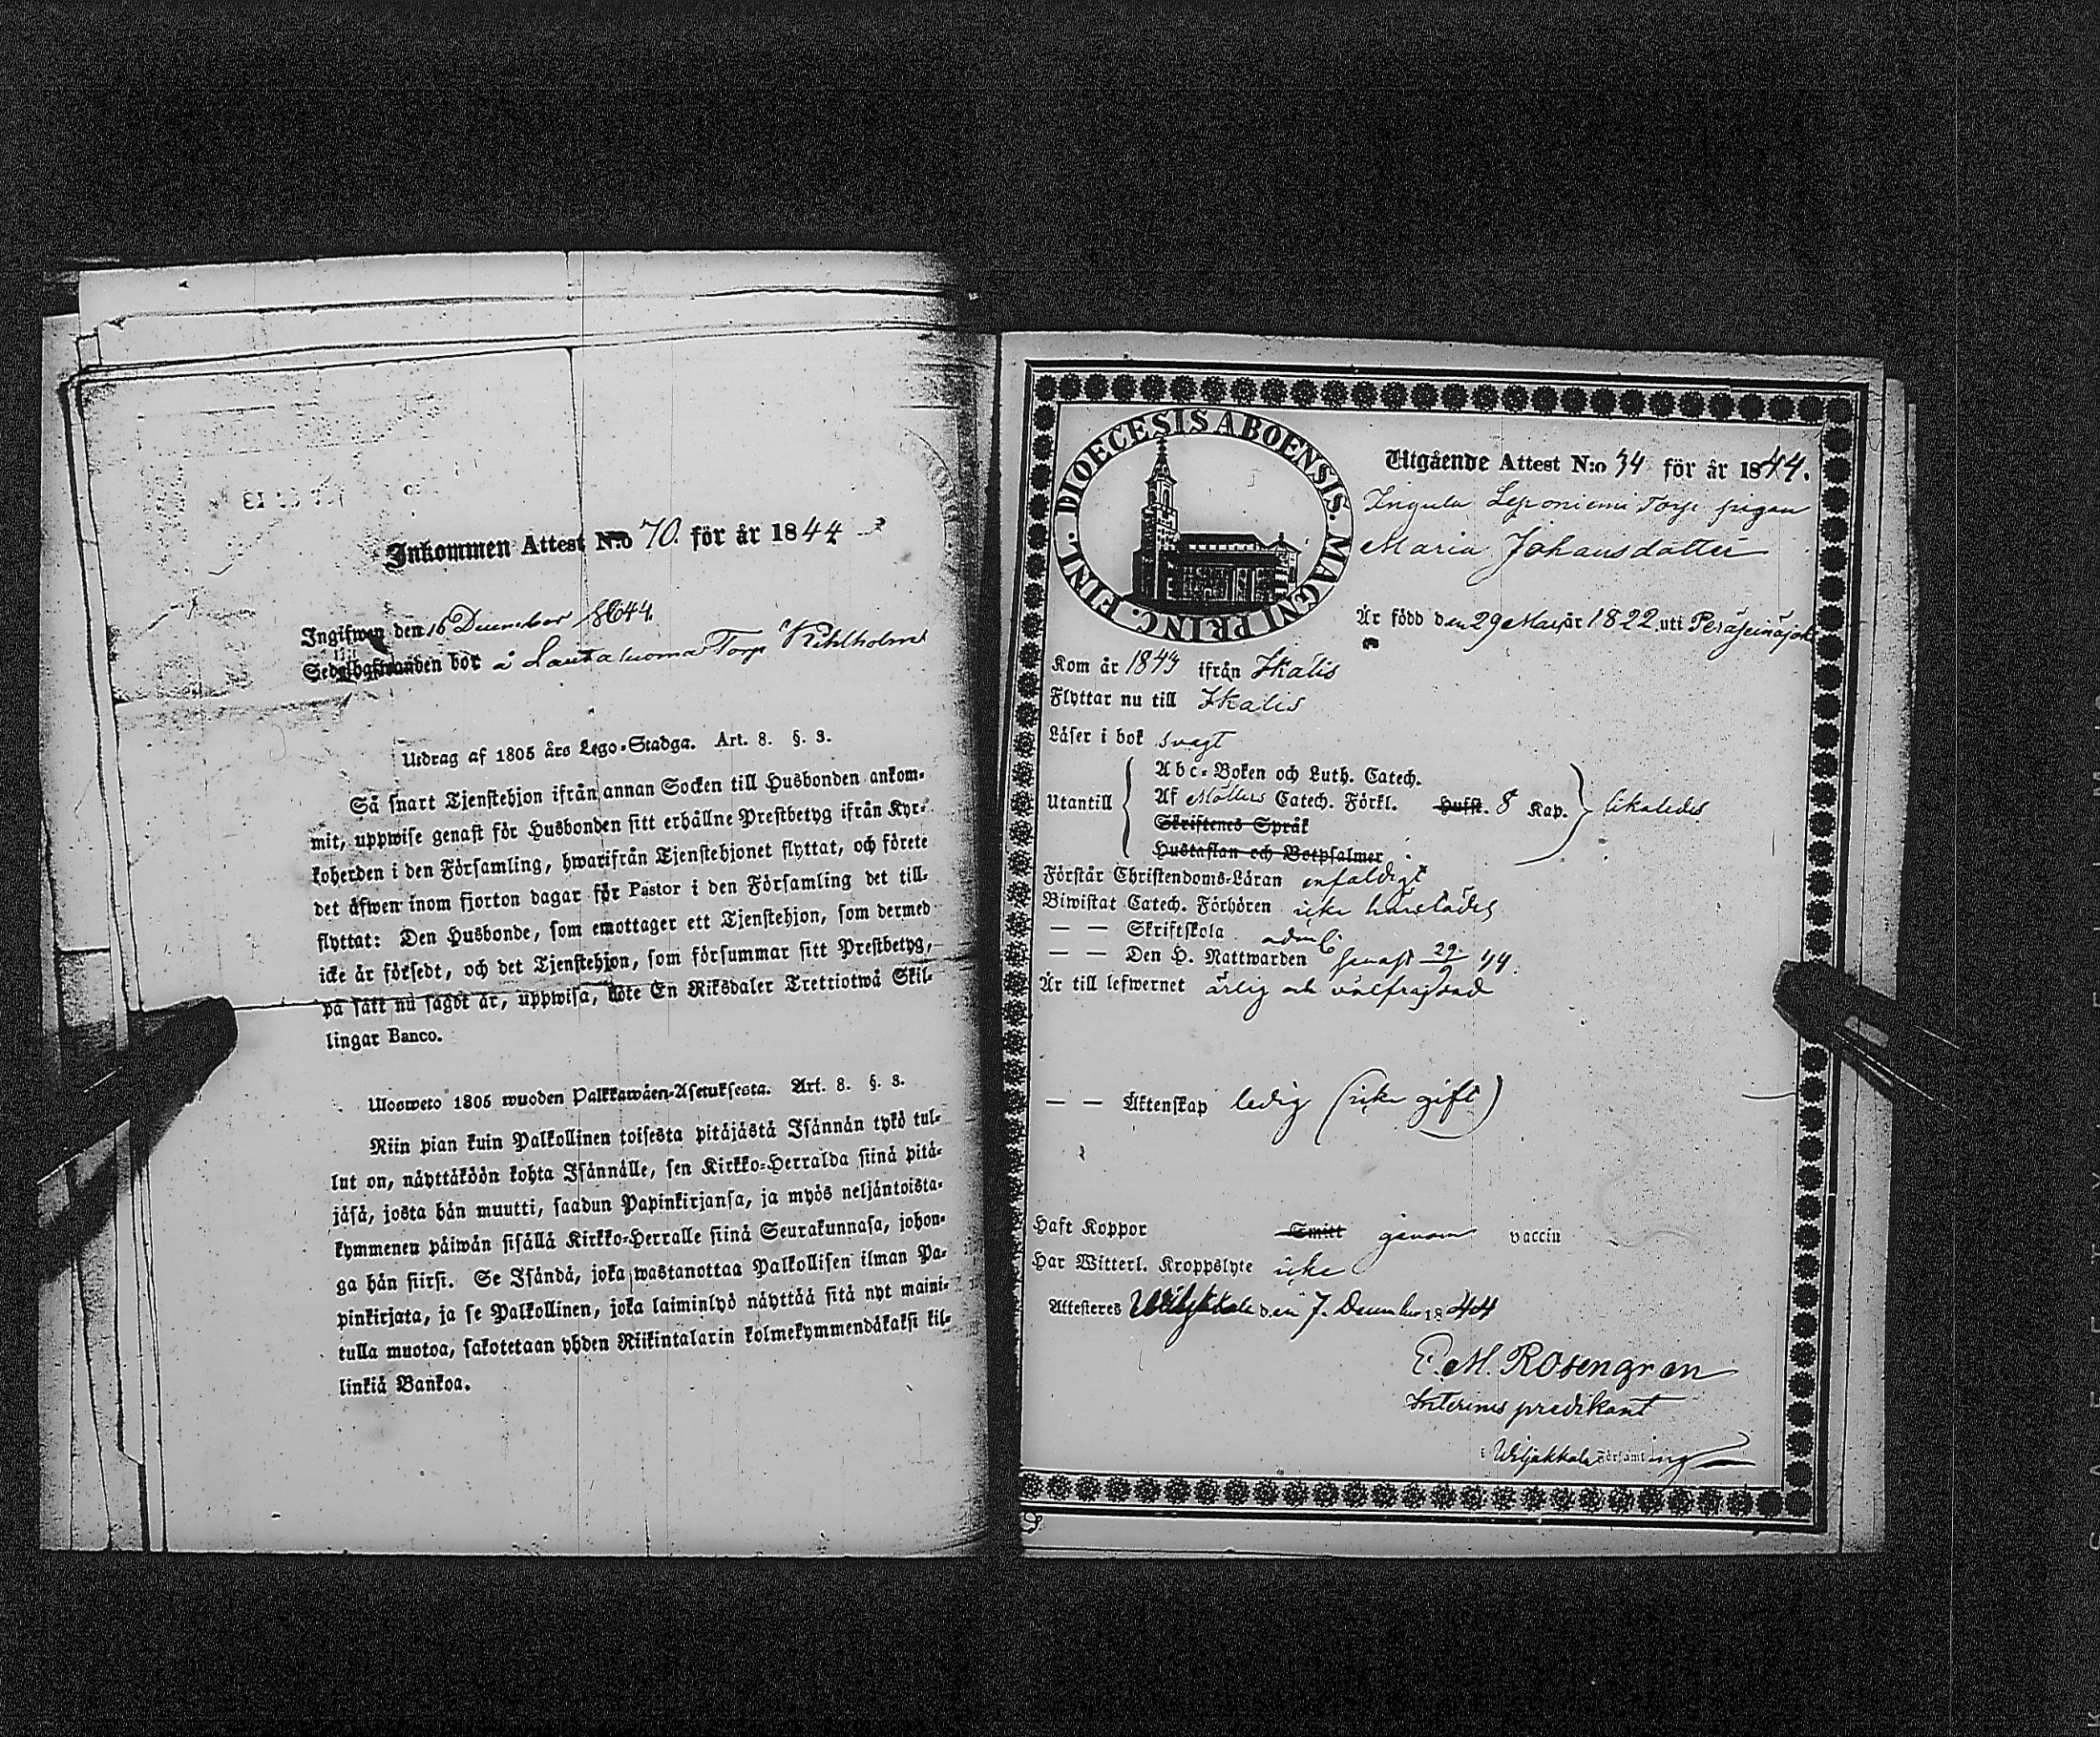 Inkommen Attest N:o 70. för år 1844
Ingifwen den 16 December 1844.
Sedelhafwanden bor å Lautaluoma Torp Kihlholms
Utdrag af 1805 års Lego-Stadga. Art. 8. §. 3.
Så snart Tjenstehjon ifrån annan Socken till Husbonden ankom-
mit, uppwise genast för Husbonden sitt erhållne Prestbetyg ifrån Kyr-
koherden i den Församling, hwarifrån Tjenstehjonet flyttat, och förete
det äfwen inom fjorton dagar för Pastor i den Församling det till-
flyttat: Den Husbonde, som emottager ett Tjenstehjon, som dermed
icke är försedt, och det Tjenstehjon, som försummar sitt Prestbetyg,
på sätt nu sagdt är, uppwisa, böte En Riksdaler Trettiotwå Skil-
lingar Banco.
Ulosweto 1805 wuoden Palkkawäen-Asetuksesta. Art. 8. §. 3.
Niin pian kuin Palkollinen toisesta pitäjästä Isännän tykö tul-
lut on, näyttäköön kohta Isännälle, sen Kirkko-Herralda siinä pitä-
jäsä, josta hän muutti, saadun Papinkirjansa, ja myös neljäntoista-
kymmenen päiwän sisällä Kirkko-Herralle siinä Seurakunnasa, johon-
ga hän siirsi. Se Isändä, joka wastanottaa Palkollisen ilman Pa-
pinkirjata, ja se Palkollinen, joka laiminlyö näyttää sitä nyt maini-
tulla muotoa, sakotetaan yhden Riikintalarin kolmekymmendäkaksi kil-
linkiä Bankoa.
DIOECESIS ABOENSIS. MAGNI PRINC. FINL.
Utgående Attest N:o 34 för år 1844.
Ingula Leponiemi Torp pigan
Maria Johansdotter
Är född den 29 Mars år 1822 uti Peräseinäjoki
Kom år 1843 ifrån Ikalis
Flyttar nu till Ikalis
Läser i bok svagt
Utantill
Abc-Boken och Luth. Catech.
Af Möllers Catech. Förkl. Hufst. 8 Kap. likaledes
Skriftenes Språk
Hustaflan och Botpsalmer
Förstår Christendoms-Läran enfaldigt
Biwistat Catech. Förhören icke härstädes
— — Skriftskola adm.
— — Den H. Nattwarden senast 29/9 44.
Är till lefwernet ärlig och välfrägdad
— — Äktenskap ledig (icke gift)
Haft Koppor Smitt genom vaccin
Har Witterl. Kroppslyte icke
Attesteres Wiljakkala den 7. December 1844
E. M. Rosengren
Interims predikant
i Wiljakkala Församling